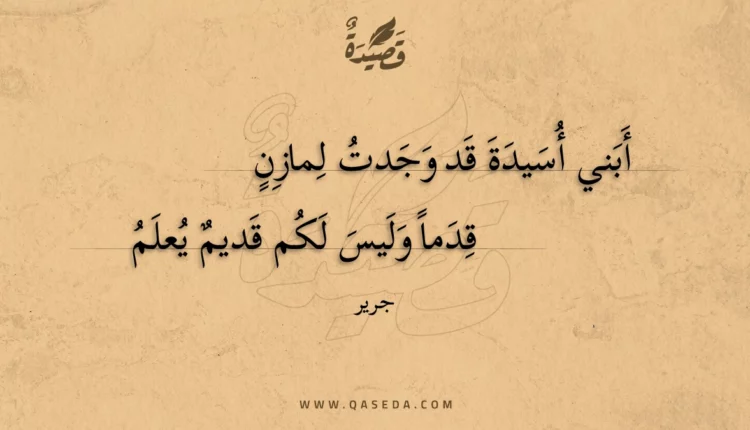 قَصِيدَةٌ
أَبَني أُسَيدَةَ قَد وَجَدتُ لِمازِنٍ
قِدَماً وَلَيسَ لَكُم قَديمٌ يُعلَمُ
جرير
WWW.QASEDA.COM